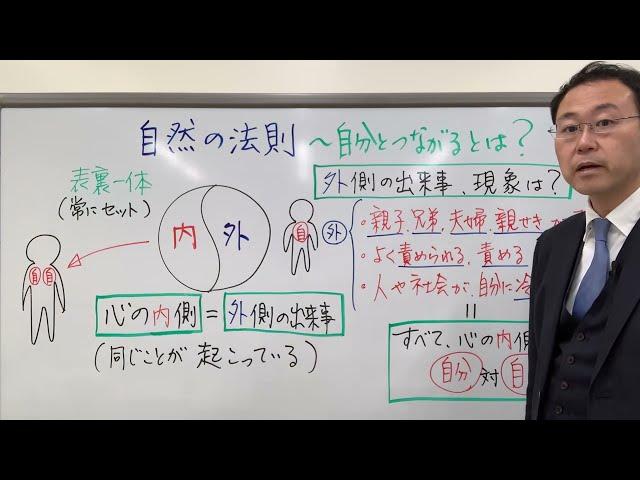 自然の法則 〜自分とつながるとは?
表裏一体
(常にセット)
内 外
自 自
心の内側 = 外側の出来事
(同じことが起こっている)
自
外
外側の出来事、現象は?
・親子、兄弟、夫婦、親せき
・よく責められる、責める
・人や社会が、自分に冷
=
すべて、心の内側
自分 対 自